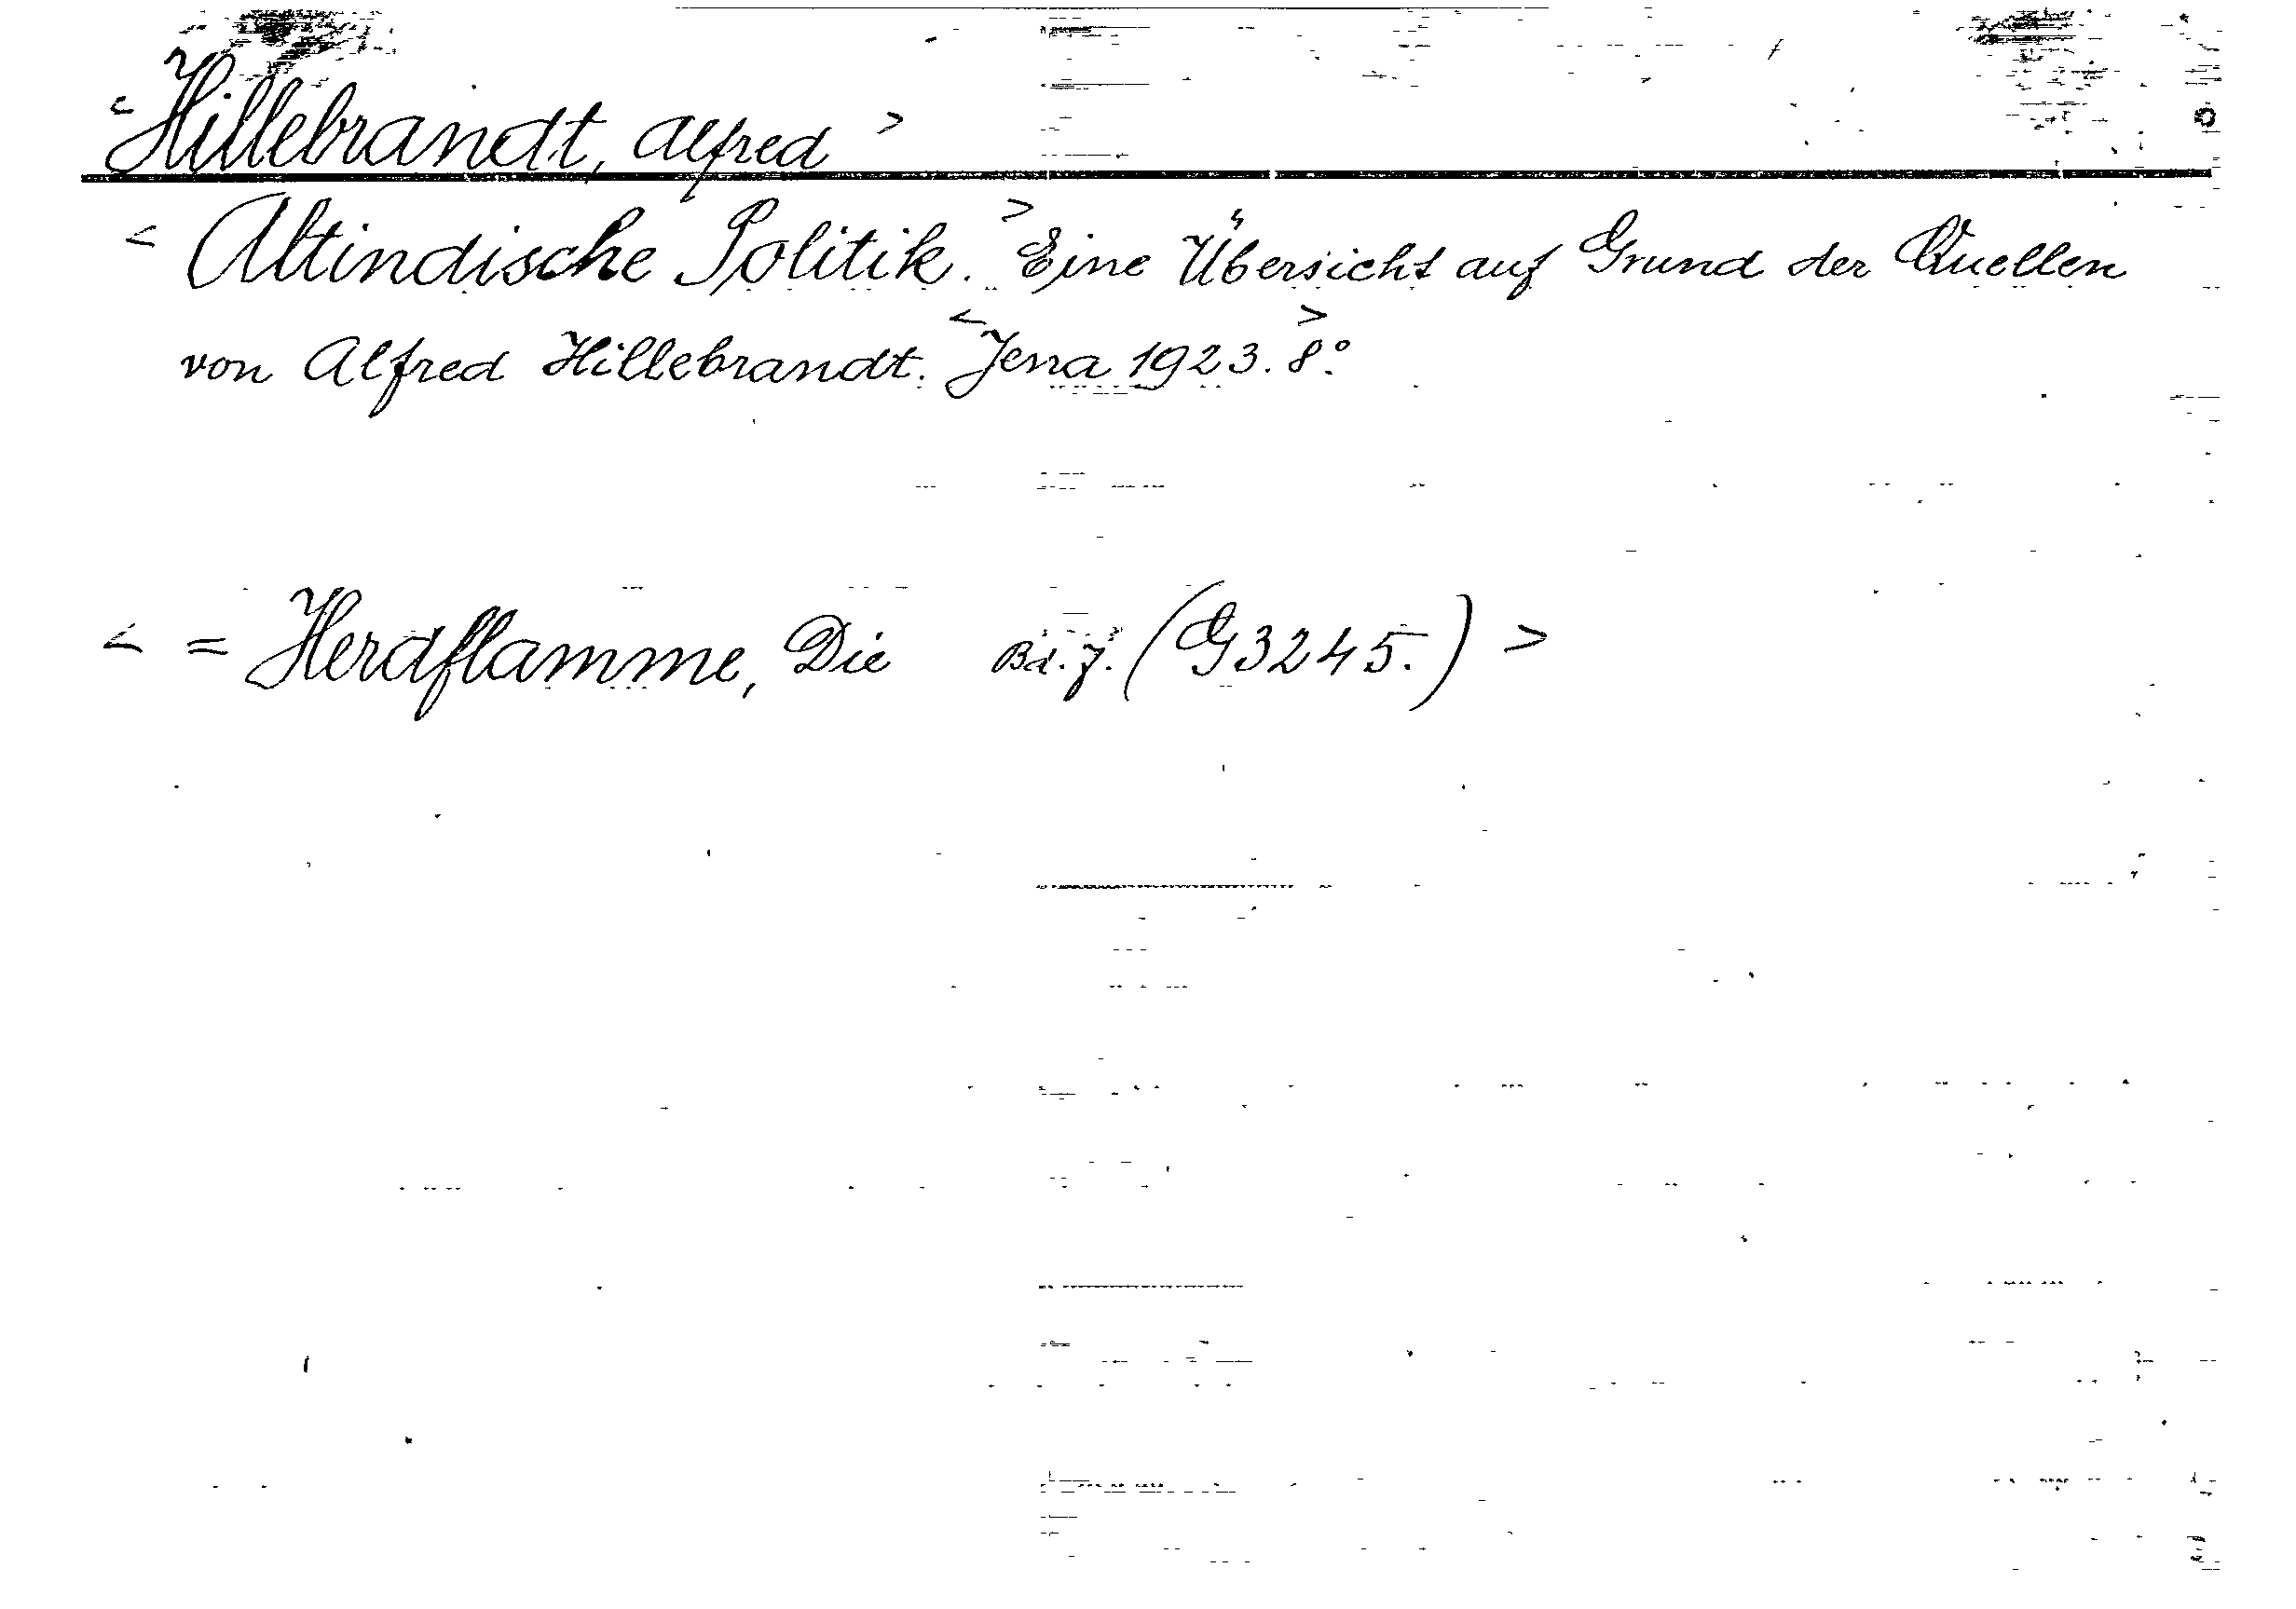 < Hillebrandt, Alfred >
< Altindische Politik. > Eine Übersicht auf Grund der Quellen
von Alfred Hillebrandt. < Jena 1923. > 8°.
< = Herdflamme, Die Bd. 7. (G3245.) >